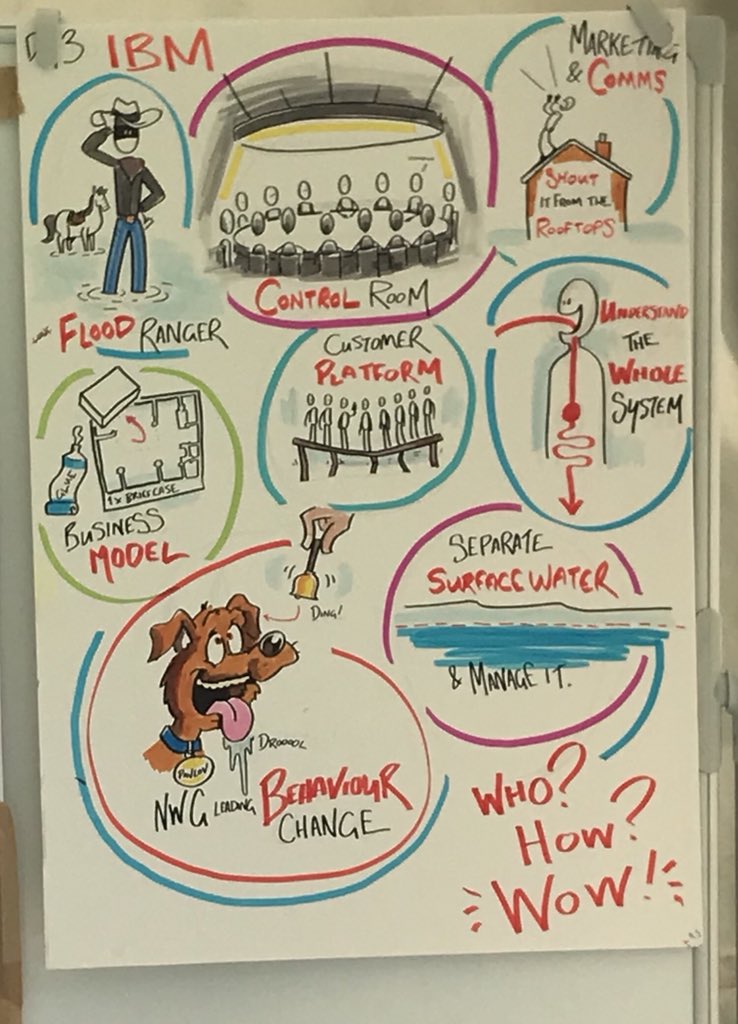 .3 IBM
MARKETING
& COMMS
SHOUT
IT FROM THE
ROOFTOPS
FLOOD RANGER
CONTROL ROOM
CUSTOMER
PLATFORM
UNDERSTAND
THE
WHOLE
SYSTEM
GLUE
1 x BRIEFCASE
BUSINESS
MODEL
SEPARATE
SURFACE WATER
& MANAGE IT.
DING!
DROOOOL
PAVLOV
NWG LEADING BEHAVIOUR
CHANGE
WHO?
HOW?
WOW!